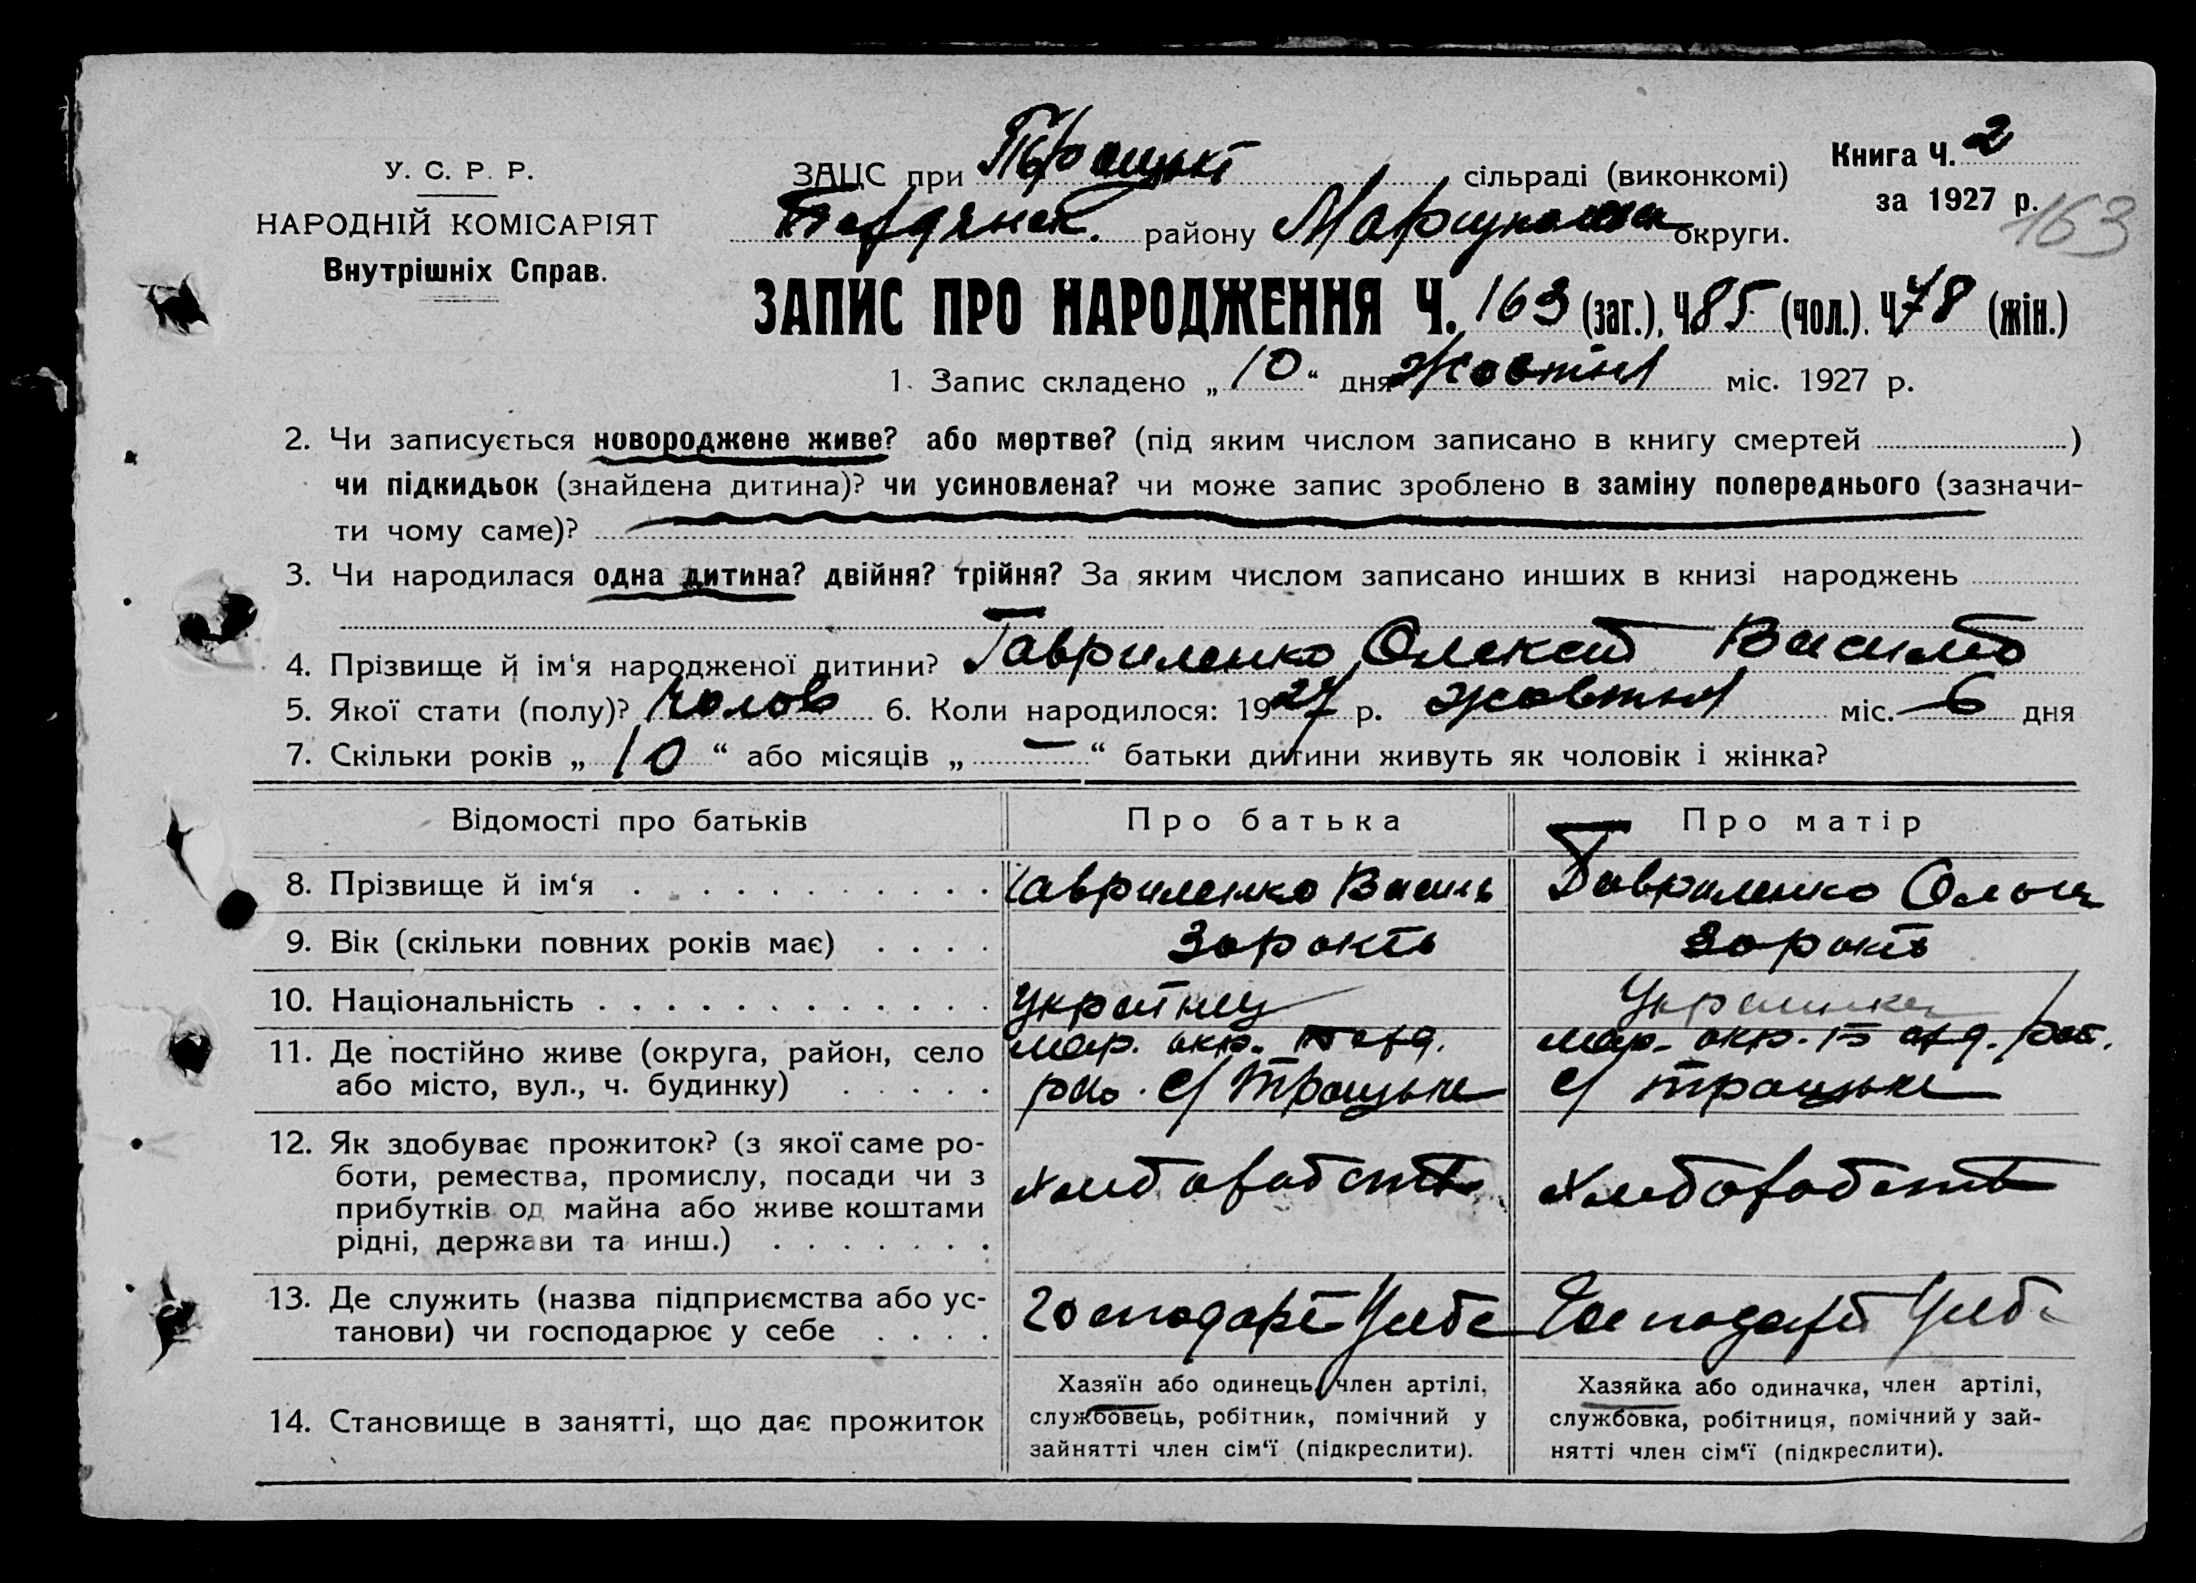 У. С. Р. Р.
НАРОДНІЙ КОМІСАРІЯТ
Внутрішніх Справ.
ЗАЦС при Троицькі сільраді (виконкомі)
Бердянск. району Мариупольск округи.
Книга Ч. 2
за 1927 р.
163
ЗАПИС ПРО НАРОДЖЕННЯ Ч. 163 (заг.), Ч. 85 (чол.). Ч. 78 (жін.)
1. Запис складено „ 10 “ дня жовтня міс. 1927 р.
2. Чи записується новороджене живе? або мертве? (під яким числом записано в книгу смертей )
чи підкидьок (знайдена дитина)? чи усиновлена? чи може запис зроблено в заміну попереднього (зазначи-
ти чому саме)?
3. Чи народилася одна дитина? двійня? трійня? За яким числом записано инших в книзі народжень
4. Прізвище й ім‘я народженої дитини? Гавриленко Олексій
5. Якої стати (полу)? Чолов 6. Коли народилося: 1927 р. жовтня міс. 6 дня
7. Скільки років „ 10 “ або місяців „ — “ батьки дитини живуть як чоловік і жінка?
Відомості про батьків Про батька Про матір
8. Прізвище й ім‘я Гавриленко Василь Гавриленко Ольга
9. Вік (скільки повних років має)
10. Національність Українец Украинка
11. Де постійно живе (округа, район, село Мар. окр. Берд. Мар. окр. Берд.
або місто, вул., ч. будинку) с/ Троицьке с/ Троицьке
12. Як здобуває прожиток? (з якої саме ро-
боти, ремества, промислу, посади чи з
прибутків од майна або живе коштами
рідні, держави та инш.)
13. Де служить (назва підприємства або ус-
танови) чи господарює у себе
14. Становище в занятті, що дає прожиток
Хазяїн або одинець, член артілі,
службовець, робітник, помічний у
зайнятті член сім‘ї (підкреслити).
Хазяйка або одиначка, член артілі,
службовка, робітниця, помічний у зай-
нятті член сім‘ї (підкреслити).